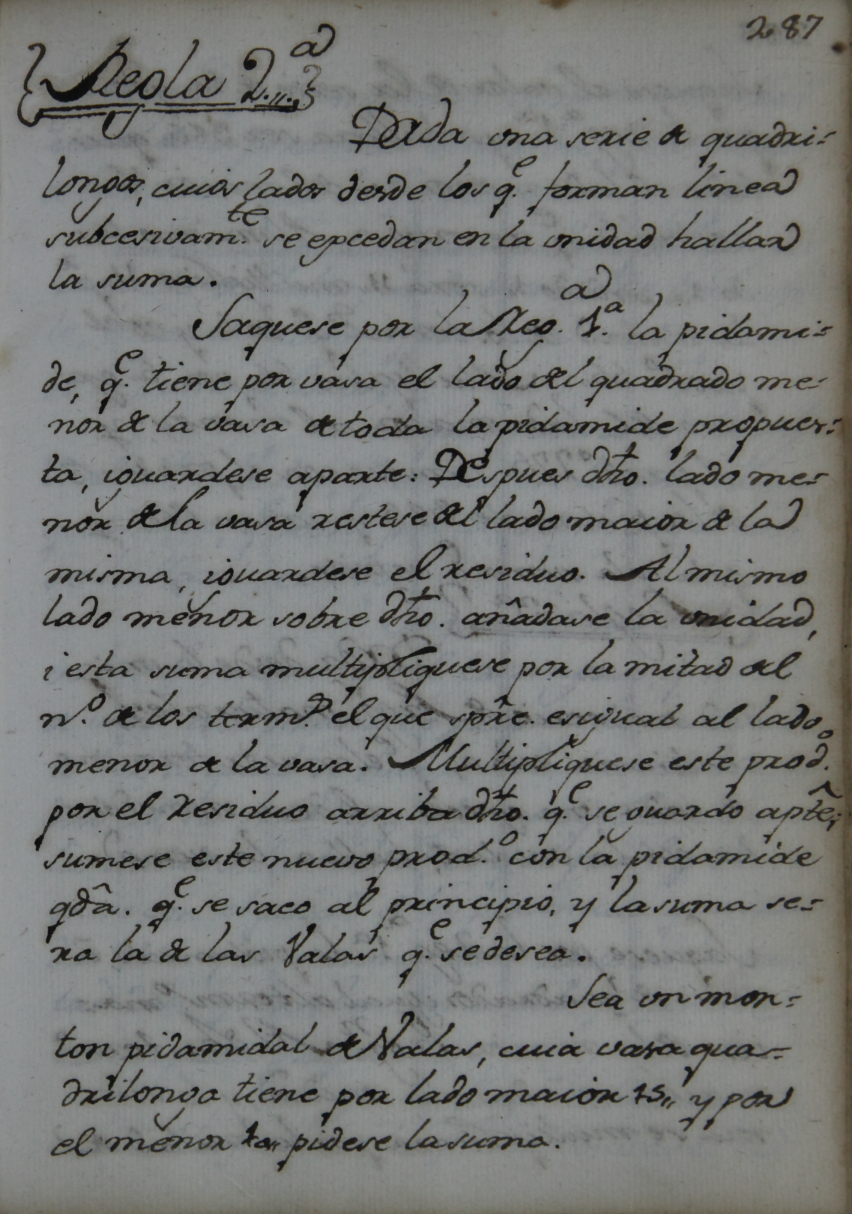 287
Regla 2.ª
Dada una serie de quadri-
longos, cuios lados desde los q.e forman linea
subcesivam.te se excedan en la unidad hallar
la suma.
Saquese por la Reg.a 1.a la pidami-
de, q.e tiene por vasa el lado del quadrado me-
nor de la vasa de toda la pidamide propues-
ta, iguardese aparte: Despues dho. lado me-
nor de la vasa restese del lado maior de la
misma, iguardese el residuo. Al mismo
lado menor sobre dho. añadase la unidad,
i esta suma multipliquese por la mitad del
n.o de los term.s el que spre. es igual al lado
menor de la vasa. Multipliquese este prod.o
por el residuo arriba dho. q.e se guardo apte;
sumese este nuevo prod.o con la pidamide
qda. q.e se saco al principio, y la suma se-
ra la de las Valas q.e se desea.
Sea un mon-
ton pidamidal de Valas, cuia vasa qua-
drilonga tiene por lado maior 15,, y por
el menor pidese la suma.